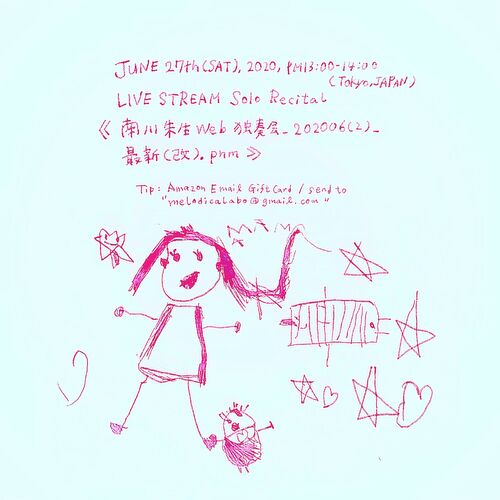 JUNE 27th(SAT), 2020, PM13:00-14:00
(Tokyo, JAPAN)
LIVE STREAM Solo Recital
《 南川朱生 Web 独奏会_202006(2)_
最新(改).pnm 》
Tip: Amazon Email Gift Card / send to
"melodicalabo@gmail.com"